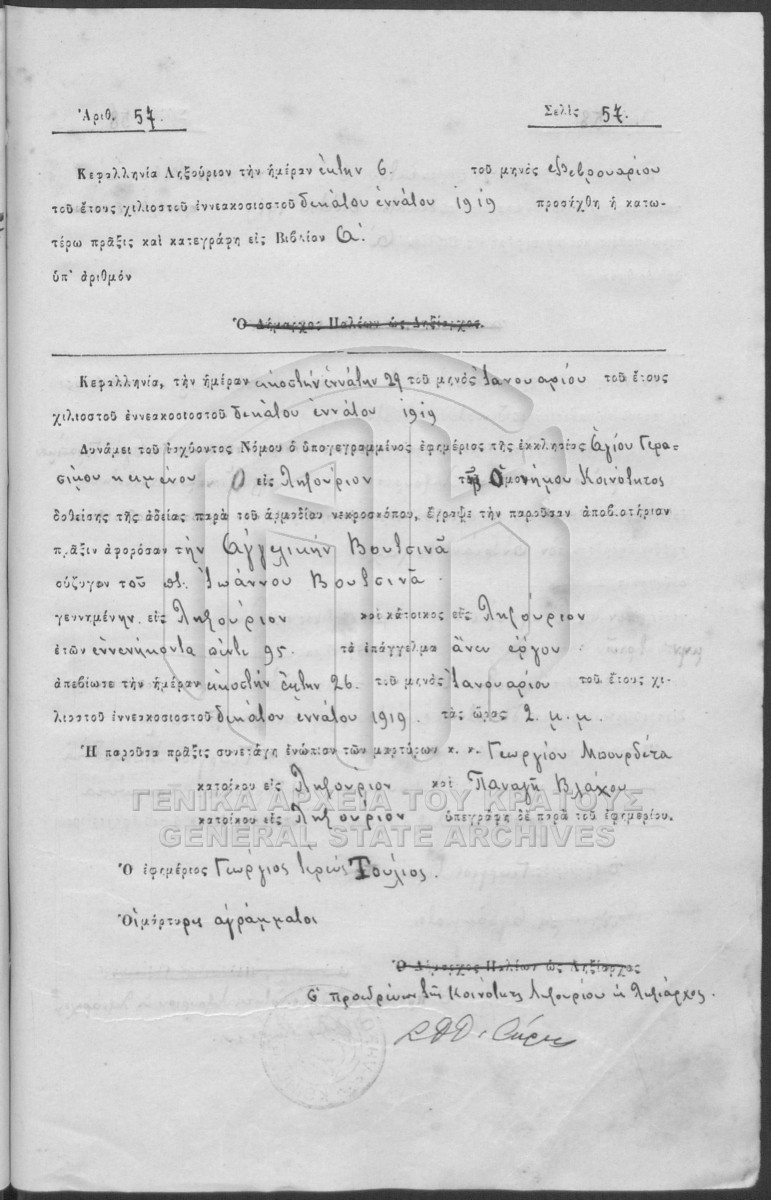 Ἀριθ. 57. Σελὶς 57.
Κεφαλληνία Ληξούριον τὴν ἡμέραν ἕκτην 6. τοῦ μηνὸς Φεβρουαρίου
τοῦ ἔτους χιλιοστοῦ ἐννεακοσιοστοῦ δεκάτου ἐννάτου 1919 προσήχθη ἡ κατω-
τέρω πρᾶξις καὶ κατεγράφη εἰς Βιβλίον Α΄.
ὑπ' ἀριθμὸν
Ὁ Δήμαρχος Παλέων ὡς Ληξίαρχος.
Κεφαλληνία, τὴν ἡμέραν εἰκοστὴν ἐννάτην 29 τοῦ μηνὸς Ἰανουαρίου τοῦ ἔτους
χιλιοστοῦ ἐννεακοσιοστοῦ δεκάτου ἐννάτου 1919
Δυνάμει τοῦ ἰσχύοντος Νόμου ὁ ὑπογεγραμμένος ἐφημέριος τῆς ἐκκλησίας Ἁγίου Γερα-
σίμου κειμένου εἰς Ληξούριον Ὁμονήμου Κοινότητος
δοθείσης τῆς ἀδείας παρὰ τοῦ ἁρμοδίου νεκροσκόπου, ἔγραψε τὴν παροῦσαν ἀποβιωτήριον
πρᾶξιν ἀφορῶσαν τὴν Ἀγγελικὴν Βουτσινᾶ
σύζυγον τοῦ Ἰωάννου Βουτσινᾶ.
γεννημένην εἰς Ληξούριον καὶ κάτοικος εἰς Ληξούριον
ἐτῶν ἐννενήκοντα πέντε 95. τὸ ἐπάγγελμα ἄνευ ἔργου
ἀπεβίωσε τὴν ἡμέραν εἰκοστὴν ἕκτην 26. τοῦ μηνὸς Ἰανουαρίου τοῦ ἔτους χι-
λιοστοῦ ἐννεακοσιοστοῦ δεκάτου ἐννάτου 1919. τὰς ὥρας 2. μ.μ.
Ἡ παροῦσα πρᾶξις συνετάγη ἐνώπιον τῶν μαρτύρων κ. κ. Γεωργίου Μπουρδέτα
κατοίκου εἰς Ληξούριον καὶ Παναγῆ Βλάχου
κατοίκου εἰς Ληξούριον ὑπεγράφη δὲ παρὰ τοῦ ἐφημερίου.
ΓΕΝΙΚΑ ΑΡΧΕΙΑ ΤΟΥ ΚΡΑΤΟΥΣ
GENERAL STATE ARCHIVES
Ὁ ἐφημέριος Γεώργιος Ἱερεὺς Τουλιος.
Οἱ μάρτυρες ἀγράμματοι
Ὁ Δήμαρχος Παλέων ὡς Ληξίαρχος
Ὁ προεδρεύων τῆς Κοινότητος Ληξουρίου ὡς Ληξίαρχος.